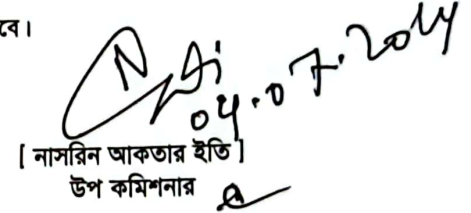 বে।
04.07.2024
[ নাসরিন আকতার ইতি ]
উপ কমিশনার